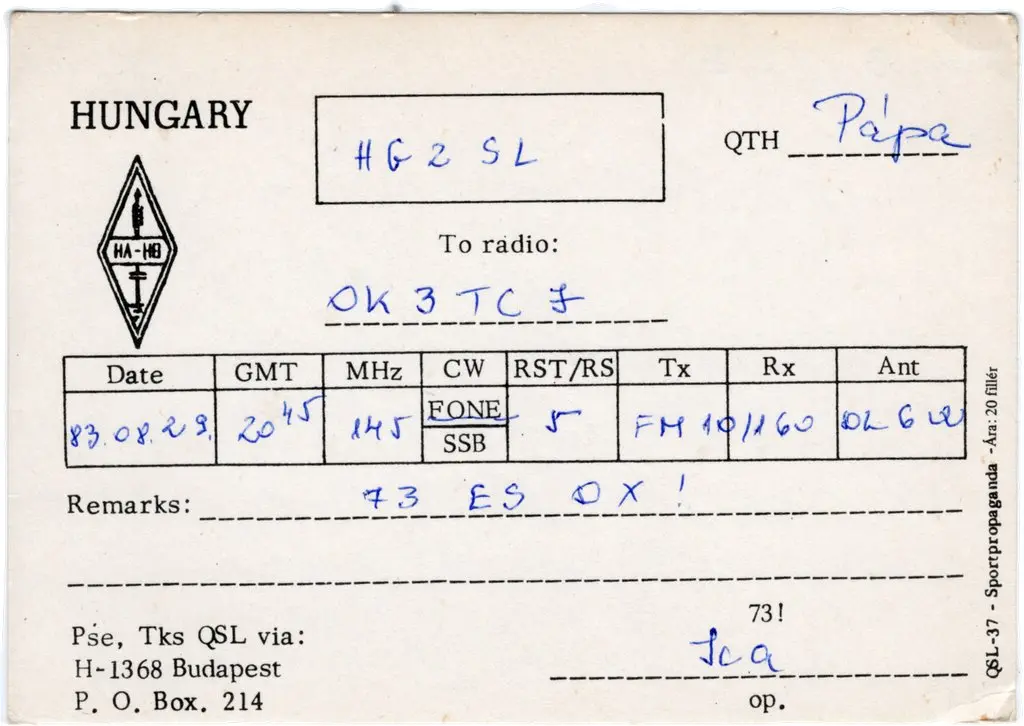 HUNGARY
HG2SL
QTH Pápa
HA-HG
To radio:
OK3TCJ
Date GMT MHz CW RST/RS Tx Rx Ant
FONE
83.08.29. 20 45 145 5 FM 10/160
SSB
Remarks: 73 ES DX!
73!
Pse, Tks QSL via:
H-1368 Budapest
P. O. Box. 214
Ica
op.
QSL-37 - Sportpropaganda -Ára: 20 fillér